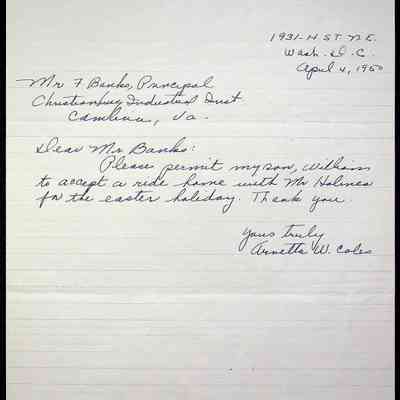 1931-H ST. N.E.
Wash. D.C.
April 4, 1950
Mr F Banks, Principal
Christianburg Industrial Inst.
Cambria, Va.
Dear Mr Banks:
Please permit my son, William
to accept a ride home with Mr Holmes
for the easter holiday. Thank you.
Yours truly
Arnetta W. Coles